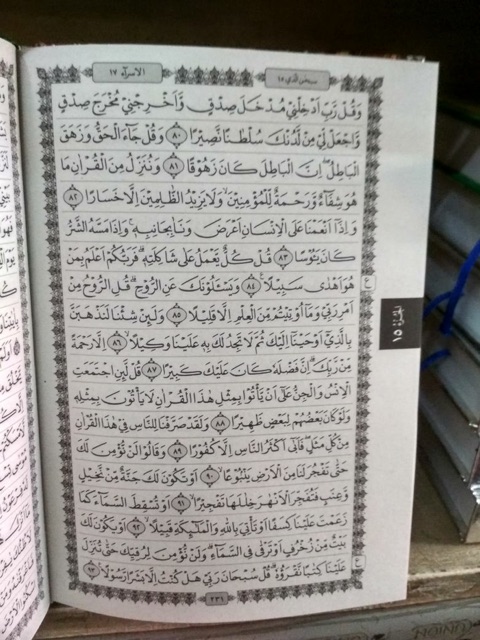 سبحن الذي ١٥
الاسرآء ١٧
وَقُلْ رَّبِّ اَدْخِلْنِيْ مُدْخَلَ صِدْقٍ وَّاَخْرِجْنِيْ مُخْرَجَ صِدْقٍ
وَّاجْعَلْ لِّيْ مِنْ لَّدُنْكَ سُلْطٰنًا نَّصِيْرًا ٨٠ وَقُلْ جَآءَ الْحَقُّ وَزَهَقَ
الْبَاطِلُ ۗ اِنَّ الْبَاطِلَ كَانَ زَهُوْقًا ٨١ وَنُنَزِّلُ مِنَ الْقُرْاٰنِ مَا
هُوَ شِفَآءٌ وَّرَحْمَةٌ لِّلْمُؤْمِنِيْنَ ۙ وَلَا يَزِيْدُ الظّٰلِمِيْنَ اِلَّا خَسَارًا ٨٢
وَاِذَآ اَنْعَمْنَا عَلَى الْاِنْسَانِ اَعْرَضَ وَنَاٰ بِجَانِبِهٖ ۚ وَاِذَا مَسَّهُ الشَّرُّ
كَانَ يَـُٔوْسًا ٨٣ قُلْ كُلٌّ يَّعْمَلُ عَلٰى شَاكِلَتِهٖ ۗ فَرَبُّكُمْ اَعْلَمُ بِمَنْ
هُوَ اَهْدٰى سَبِيْلًا ٨٤ وَيَسْـَٔلُوْنَكَ عَنِ الرُّوْحِ ۗ قُلِ الرُّوْحُ مِنْ
اَمْرِ رَبِّيْ وَمَآ اُوْتِيْتُمْ مِّنَ الْعِلْمِ اِلَّا قَلِيْلًا ٨٥ وَلَىِٕنْ شِئْنَا لَنَذْهَبَنَّ
بِالَّذِيْٓ اَوْحَيْنَآ اِلَيْكَ ثُمَّ لَا تَجِدُ لَكَ بِهٖ عَلَيْنَا وَكِيْلًا ۙ ٨٦ اِلَّا رَحْمَةً
مِّنْ رَّبِّكَ ۗ اِنَّ فَضْلَهٗ كَانَ عَلَيْكَ كَبِيْرًا ٨٧ قُلْ لَّىِٕنِ اجْتَمَعَتِ
الْاِنْسُ وَالْجِنُّ عَلٰٓى اَنْ يَّأْتُوْا بِمِثْلِ هٰذَا الْقُرْاٰنِ لَا يَأْتُوْنَ بِمِثْلِهٖ
وَلَوْ كَانَ بَعْضُهُمْ لِبَعْضٍ ظَهِيْرًا ٨٨ وَلَقَدْ صَرَّفْنَا لِلنَّاسِ فِيْ هٰذَا الْقُرْاٰنِ
مِنْ كُلِّ مَثَلٍ فَاَبٰىٓ اَكْثَرُ النَّاسِ اِلَّا كُفُوْرًا ٨٩ وَقَالُوْا لَنْ نُّؤْمِنَ لَكَ
حَتّٰى تَفْجُرَ لَنَا مِنَ الْاَرْضِ يَنْۢبُوْعًا ۙ ٩٠ اَوْ تَكُوْنَ لَكَ جَنَّةٌ مِّنْ نَّخِيْلٍ
وَّعِنَبٍ فَتُفَجِّرَ الْاَنْهٰرَ خِلٰلَهَا تَفْجِيْرًا ۙ ٩١ اَوْ تُسْقِطَ السَّمَآءَ كَمَا
زَعَمْتَ عَلَيْنَا كِسَفًا اَوْ تَأْتِيَ بِاللّٰهِ وَالْمَلٰۤىِٕكَةِ قَبِيْلًا ۙ ٩٢ اَوْ يَكُوْنَ لَكَ
بَيْتٌ مِّنْ زُخْرُفٍ اَوْ تَرْقٰى فِى السَّمَآءِ ۗ وَلَنْ نُّؤْمِنَ لِرُقِيِّكَ حَتّٰى تُنَزِّلَ
عَلَيْنَا كِتٰبًا نَّقْرَؤُهٗ ۗ قُلْ سُبْحَانَ رَبِّيْ هَلْ كُنْتُ اِلَّا بَشَرًا رَّسُوْلًا ٩٣
ع
ع
الجزء ١٥
٢٣١